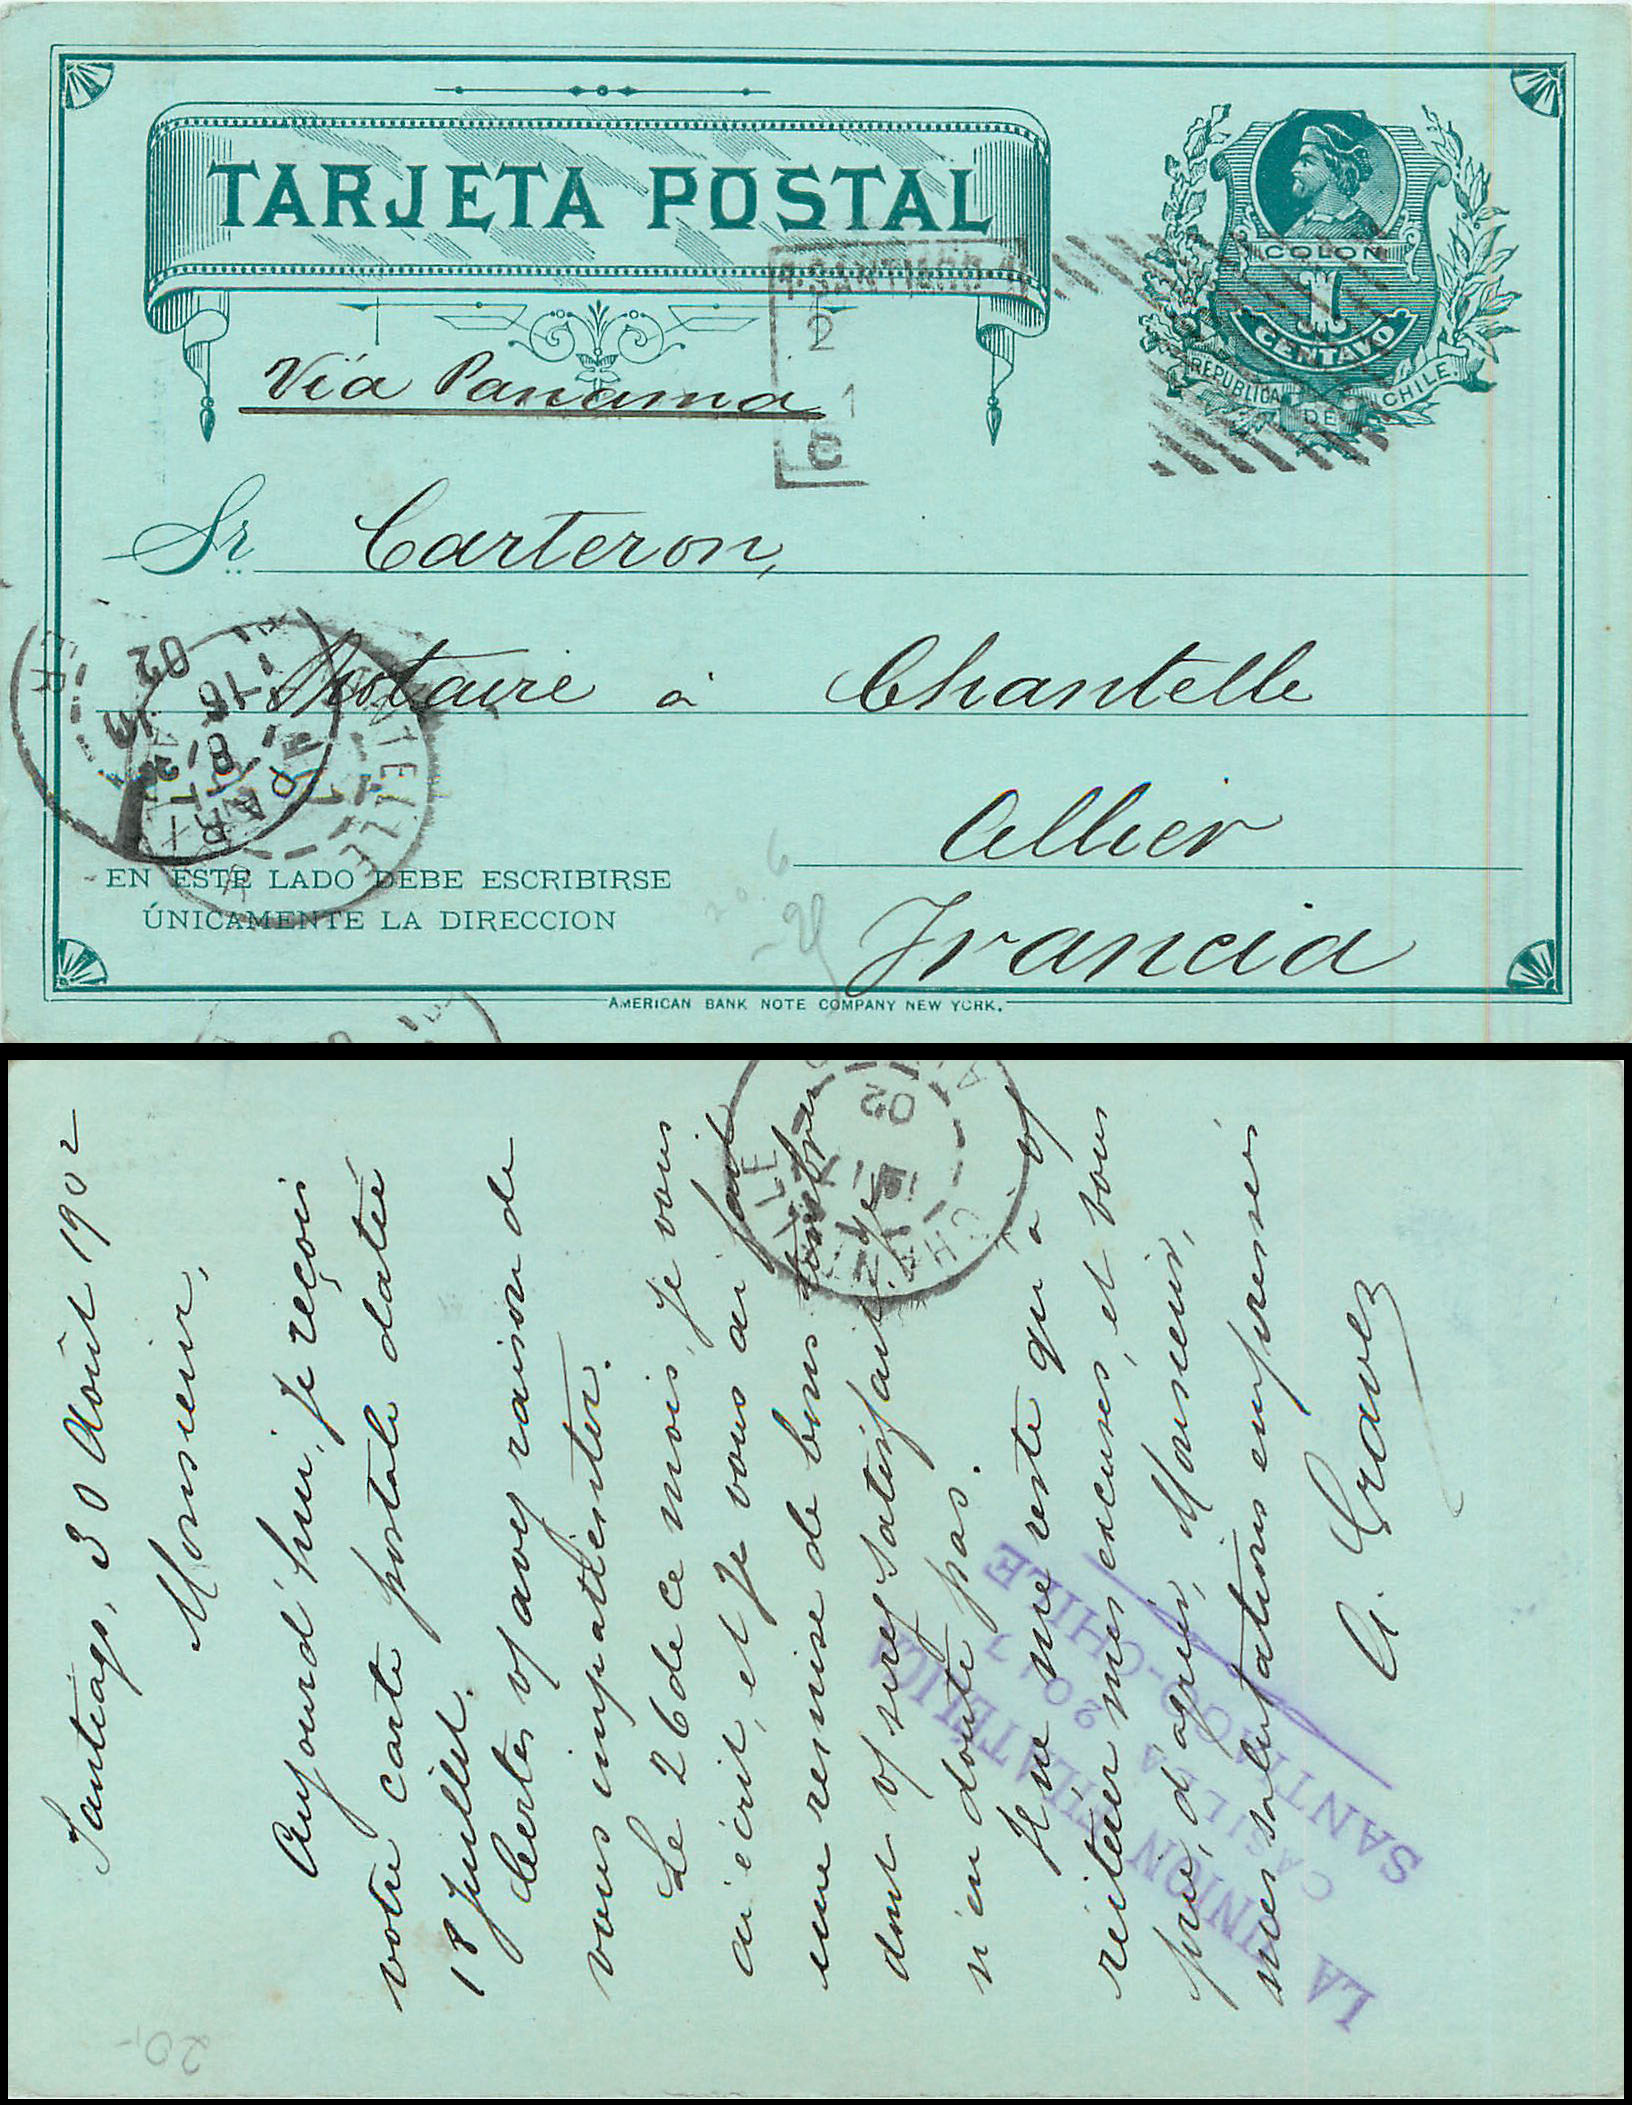 TARJETA POSTAL
COLON
1
CENTAVO
REPUBLICA DE CHILE
SANTIAGO
2
1
C
Via Panama
Sr. Carteron,
Notaire à Chantelle
Allier
Francia
EN ESTE LADO DEBE ESCRIBIRSE
ÚNICAMENTE LA DIRECCION
AMERICAN BANK NOTE COMPANY NEW YORK.
02
20,-
Santiago, 30 Août 1902
Monsieur,
Aujourd'hui, je reçois
votre carte postale datée
18 Juillet.
Certes vs avez raison de
vous impatienter.
Le 26 de ce mois, je vous
ai écrit, et je vous ai fait
une remise de bons timbres
dont vs serez satisfait, je
n'en doute pas.
Il ne me reste qu'à vs
réitérer mes excuses, et vous
prie, d'agréer, Monsieur,
mes salutations empressées
A. Gravez
CHANTELLE
02
LA UNION FILATÉLICA
CASILLA 2017
SANTIAGO-CHILE